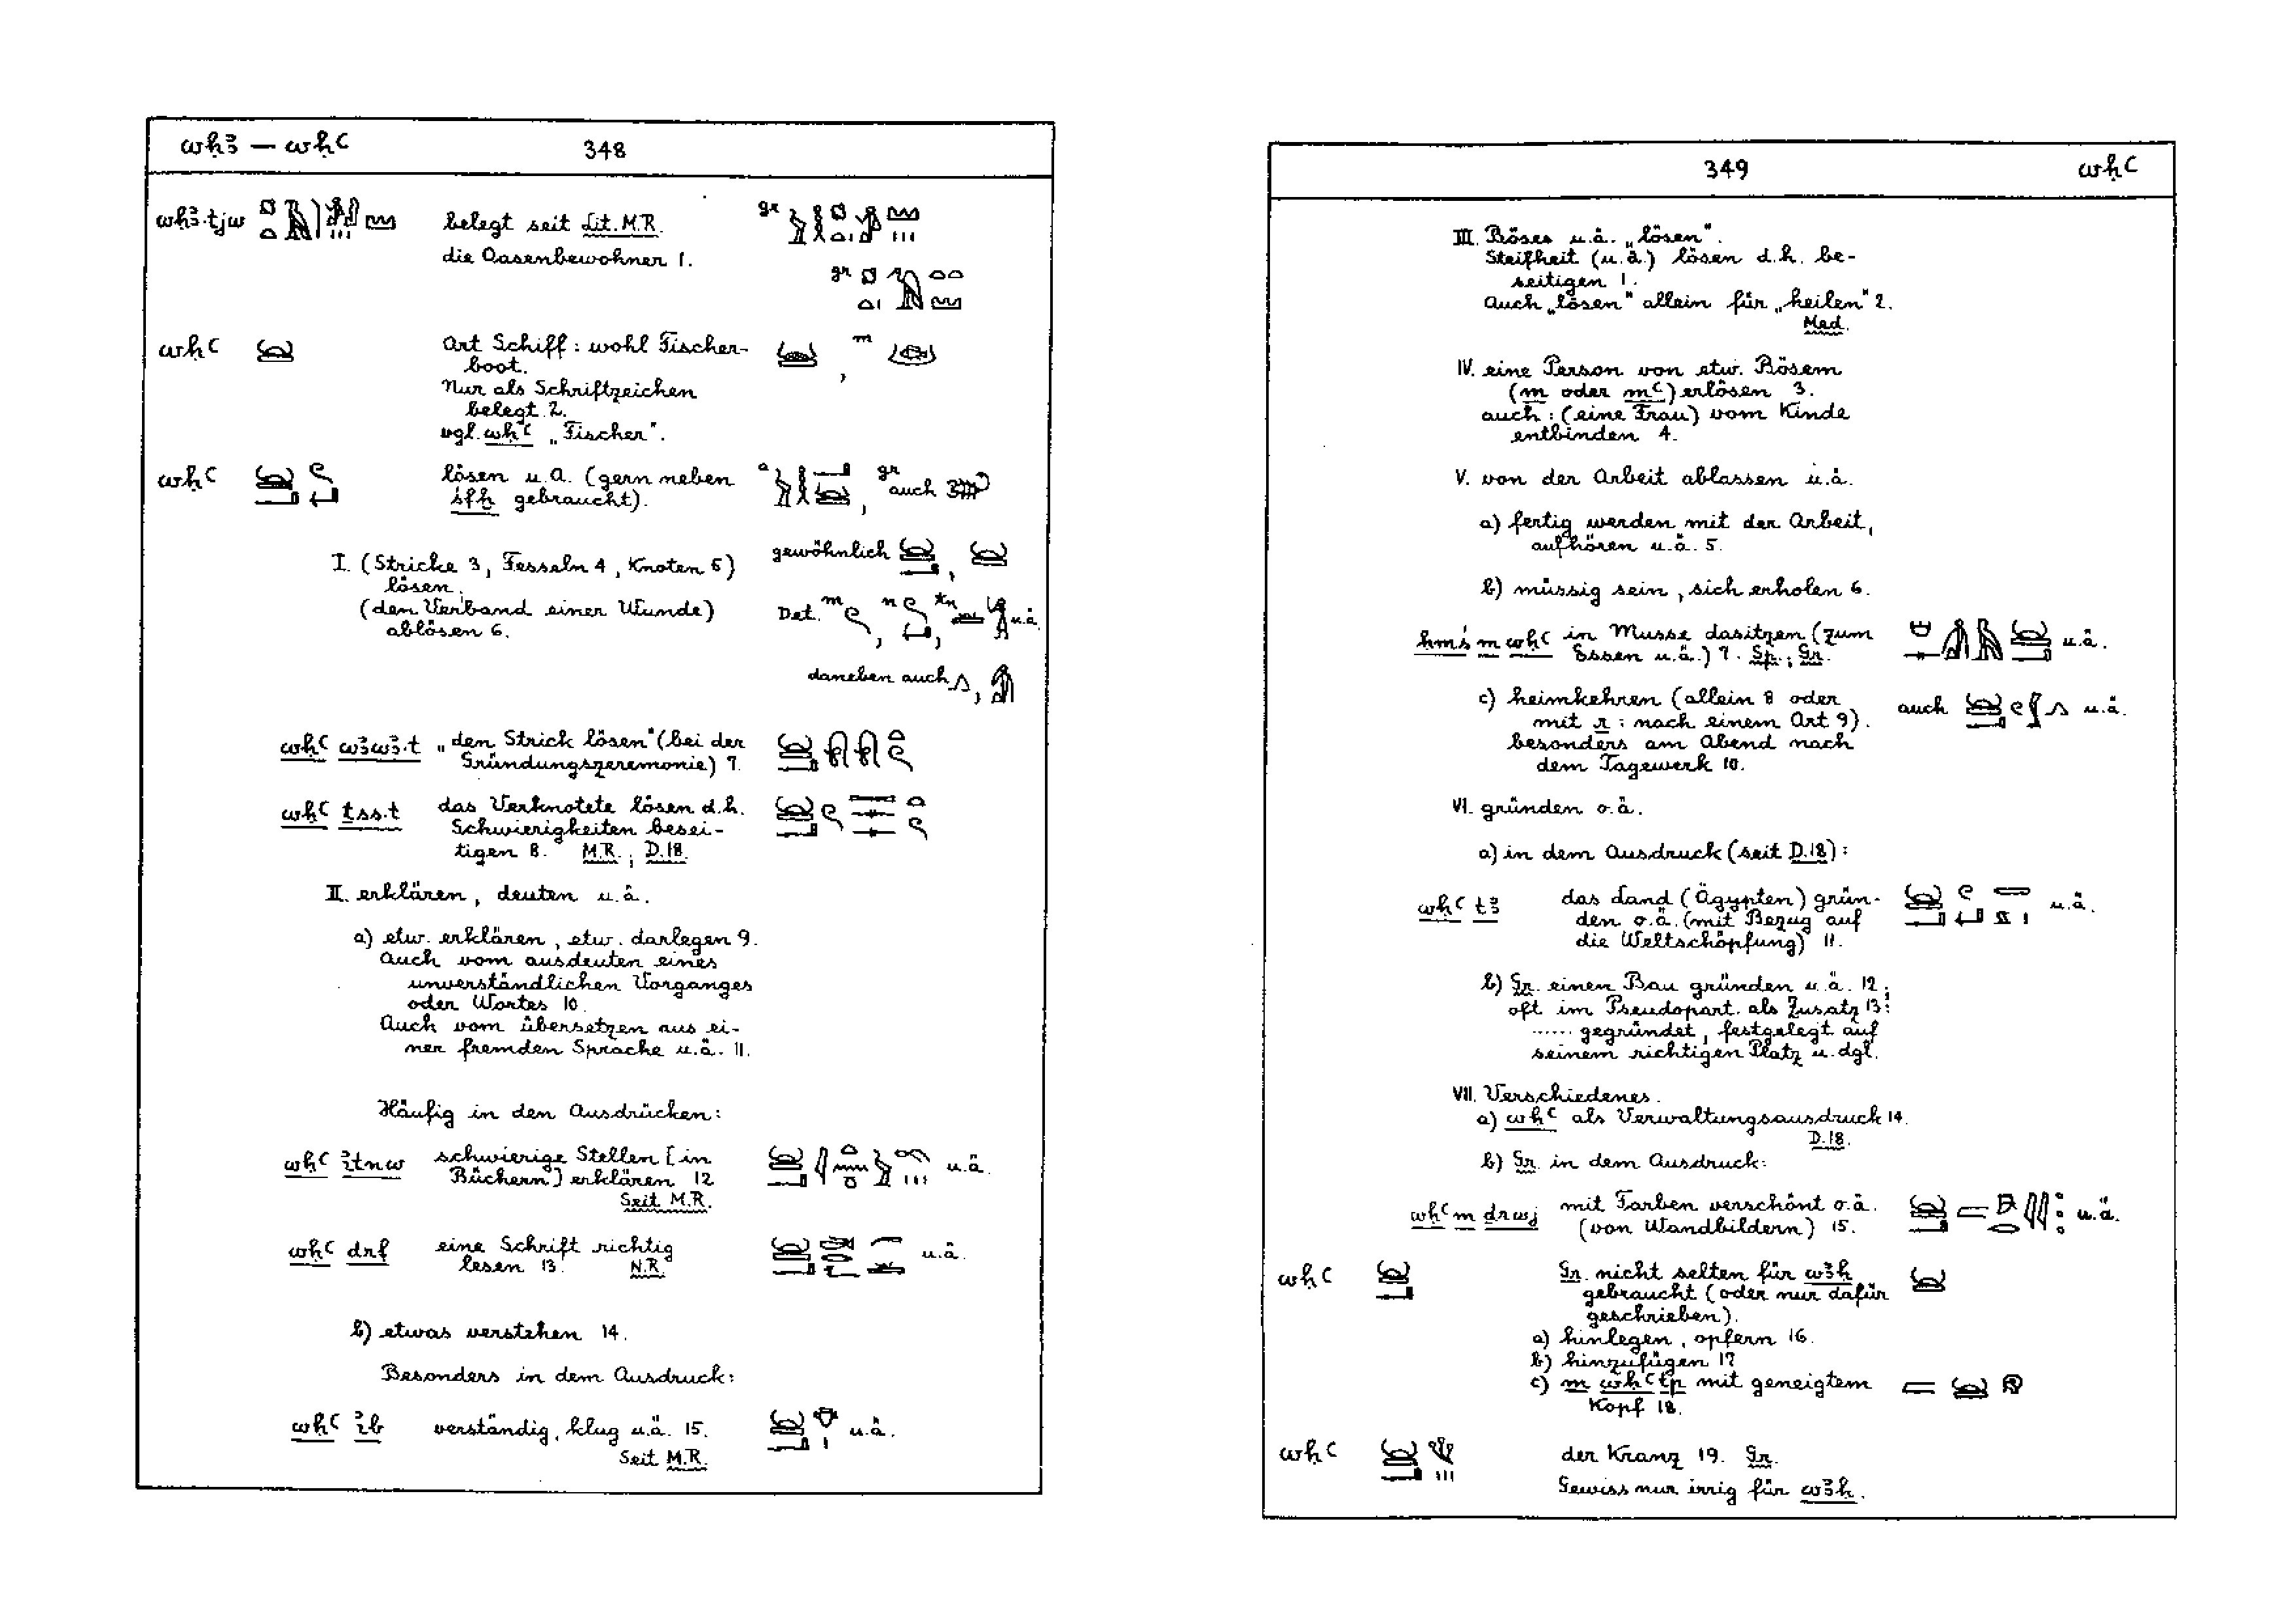 wḥꜣ — wḥꜥ 348
wḥꜣ·tjw belegt seit Lit. M.R.
die Oasenbewohner 1.
gr
gr
wḥꜥ Art Schiff: wohl Fischer-
boot.
Nur als Schriftzeichen
belegt 2.
vgl. wḥꜥ „Fischer".
, m
wḥꜥ lösen u.ä. (gern neben
śfḫ gebraucht).
a , gr auch
gewöhnlich ,
I. (Stricke 3, Fesseln 4, Knoten 5)
lösen.
(den Verband einer Wunde)
ablösen 6.
Det. m , n , *n u.ä.
daneben auch ,
wḥꜥ wꜣwꜣ·t „den Strick lösen" (bei der
Gründungszeremonie) 7.
wḥꜥ ṯss·t das Verknotete lösen d.h.
Schwierigkeiten besei-
tigen 8. M.R.; D.18.
II. erklären, deuten u.ä.
a) etw. erklären, etw. darlegen 9.
Auch vom ausdeuten eines
unverständlichen Vorganges
oder Wortes 10.
Auch vom übersetzen aus ei-
ner fremden Sprache u.ä. 11.
Häufig in den Ausdrücken:
wḥꜥ ꞽtnw schwierige Stellen [in
Büchern] erklären 12 u.ä.
Seit M.R.
wḥꜥ drf eine Schrift richtig
lesen 13. N.R. u.ä.
b) etwas verstehen 14.
Besonders in dem Ausdruck:
wḥꜥ ꞽb verständig, klug u.ä. 15. u.ä.
Seit M.R.
349 wḥꜥ
III. Böses u.ä. „lösen".
Steifheit (u.ä.) lösen d.h. be-
seitigen 1.
Auch „lösen" allein für „heilen" 2.
Med.
IV. eine Person von etw. Bösem
(m oder mꜥ) erlösen 3.
auch: (eine Frau) vom Kinde
entbinden 4.
V. von der Arbeit ablassen u.ä.
a) fertig werden mit der Arbeit,
aufhören u.ä. 5.
b) müssig sein, sich erholen 6.
ḥmś m wḥꜥ in Musse dasitzen (zum
Essen u.ä.) 7. Sp.; Gr. u.ä.
c) heimkehren (allein 8 oder
mit r: nach einem Ort 9).
besonders am Abend nach
dem Tagewerk 10.
auch u.ä.
VI. gründen o.ä.
a) in dem Ausdruck (seit D.18):
wḥꜥ tꜣ das Land (Ägypten) grün-
den o.ä. (mit Bezug auf
die Weltschöpfung) 11.
u.ä.
b) Gr. einen Bau gründen u.ä. 12;
oft im Pseudopart. als Zusatz 13:
...... gegründet, festgelegt auf
seinem richtigen Platz u. dgl.
VII. Verschiedenes.
a) wḥꜥ als Verwaltungsausdruck 14.
D.18.
b) Gr. in dem Ausdruck:
wḥꜥ m drwj mit Farben verschönt o.ä.
(von Wandbildern) 15. u.ä.
wḥꜥ Gr. nicht selten für wꜣḥ
gebraucht (oder nur dafür
geschrieben).
a) hinlegen, opfern 16.
b) hinzufügen 17
c) m wḥꜥ tp mit geneigtem
Kopf 18.
wḥꜥ der Kranz 19. Gr.
Gewiss nur irrig für wꜣḥ.